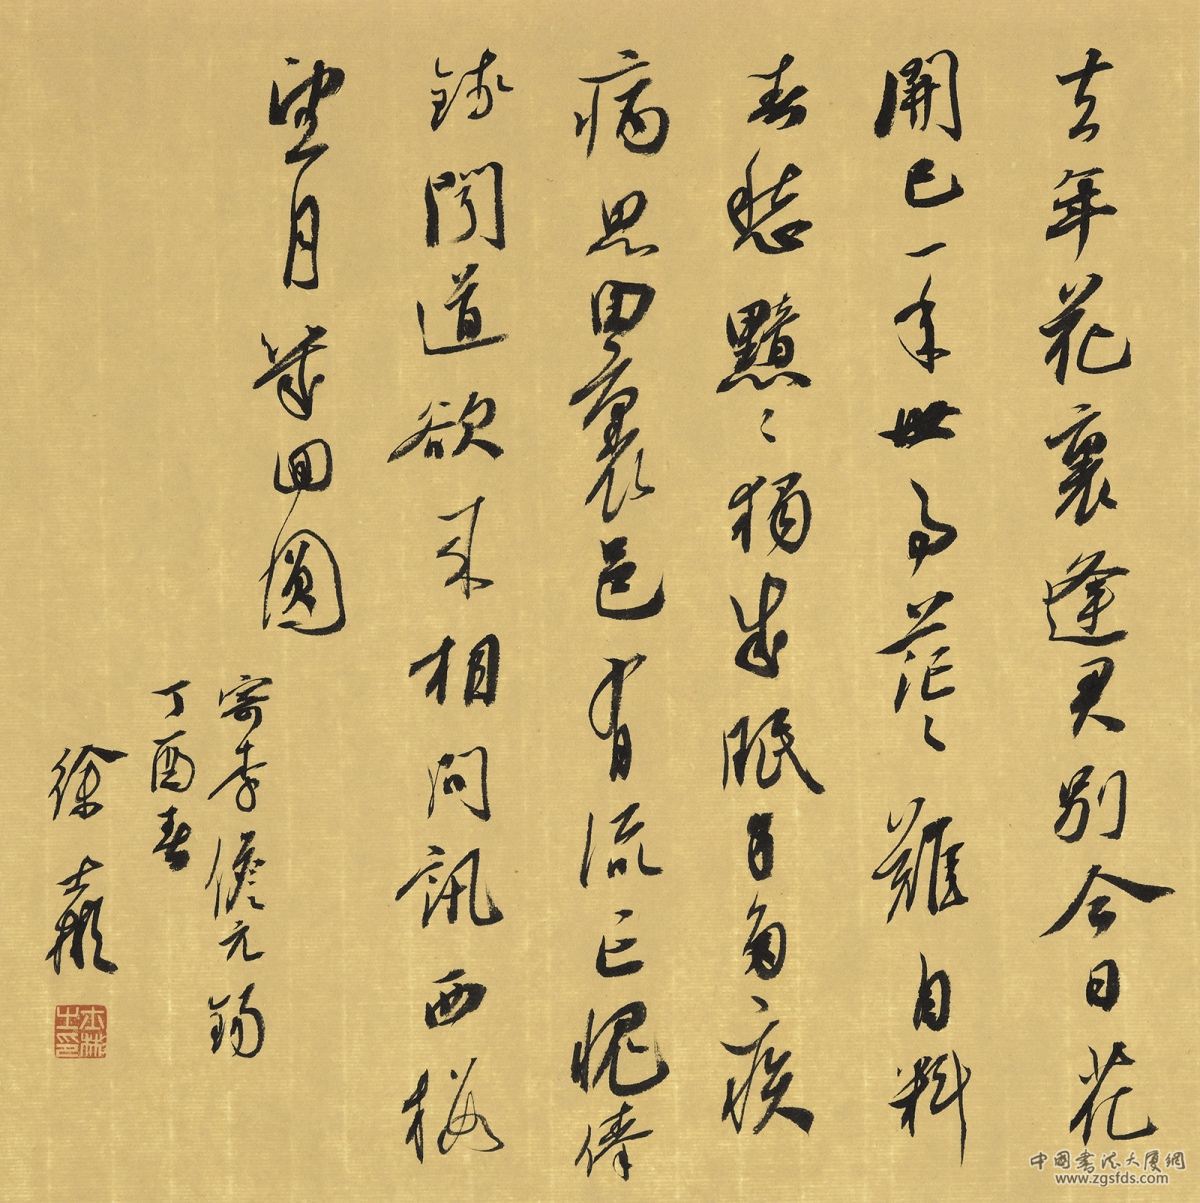 去年花裏逢君別今日花
開已一年世事茫々難自料
春愁黯々獨成眠身多疾
病思田裏邑有流亡愧俸
錢聞道欲來相問訊西樓
望月幾回圓
寄李儋元錫
丁酉春
徐
中國書法大厦網
www.zgsfds.com